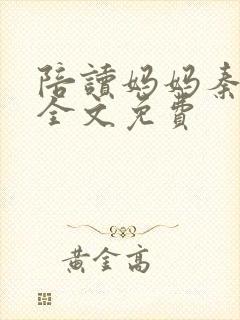 陪讀媽媽秦
全文免費
黃金高